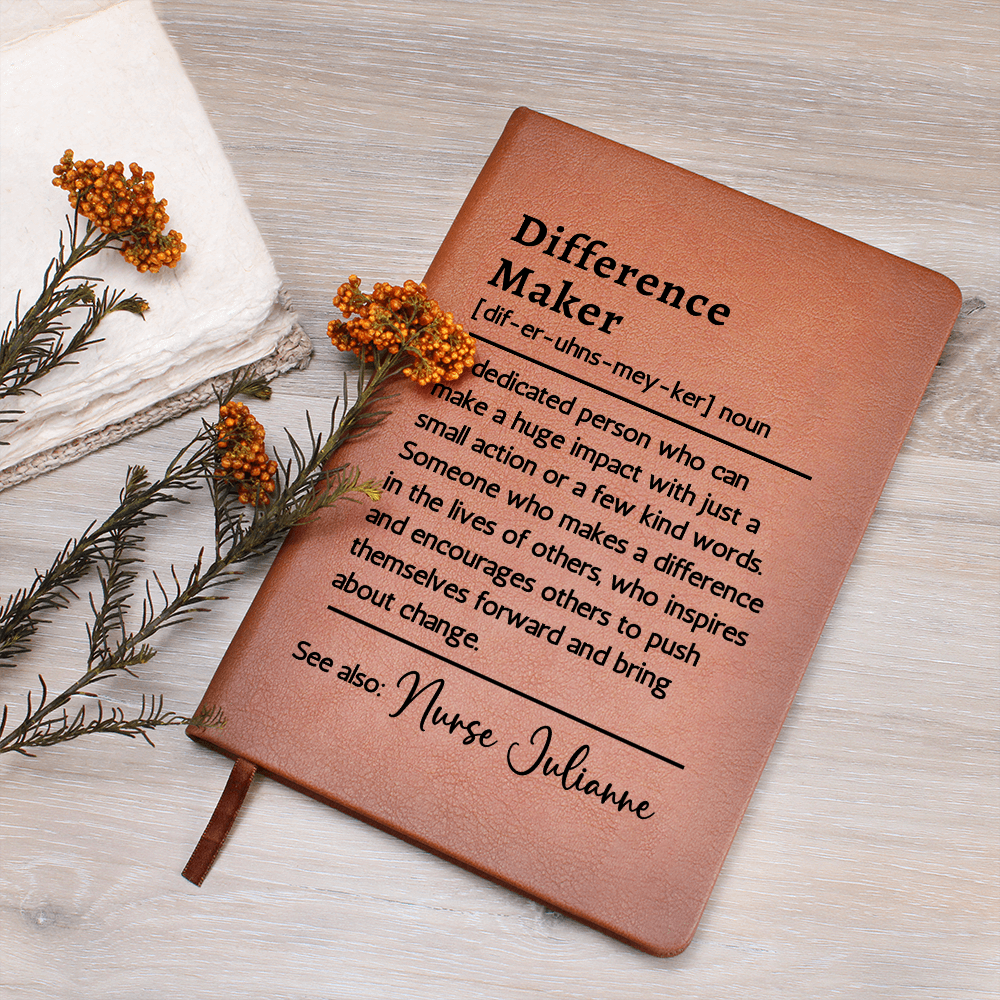 Difference
Maker
[dif-er-uhns-mey-ker] noun
dedicated person who can
make a huge impact with just a
small action or a few kind words.
Someone who makes a difference
in the lives of others, who inspires
and encourages others to push
themselves forward and bring
about change.
See also: Nurse Julianne